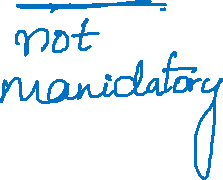 not
manidatory